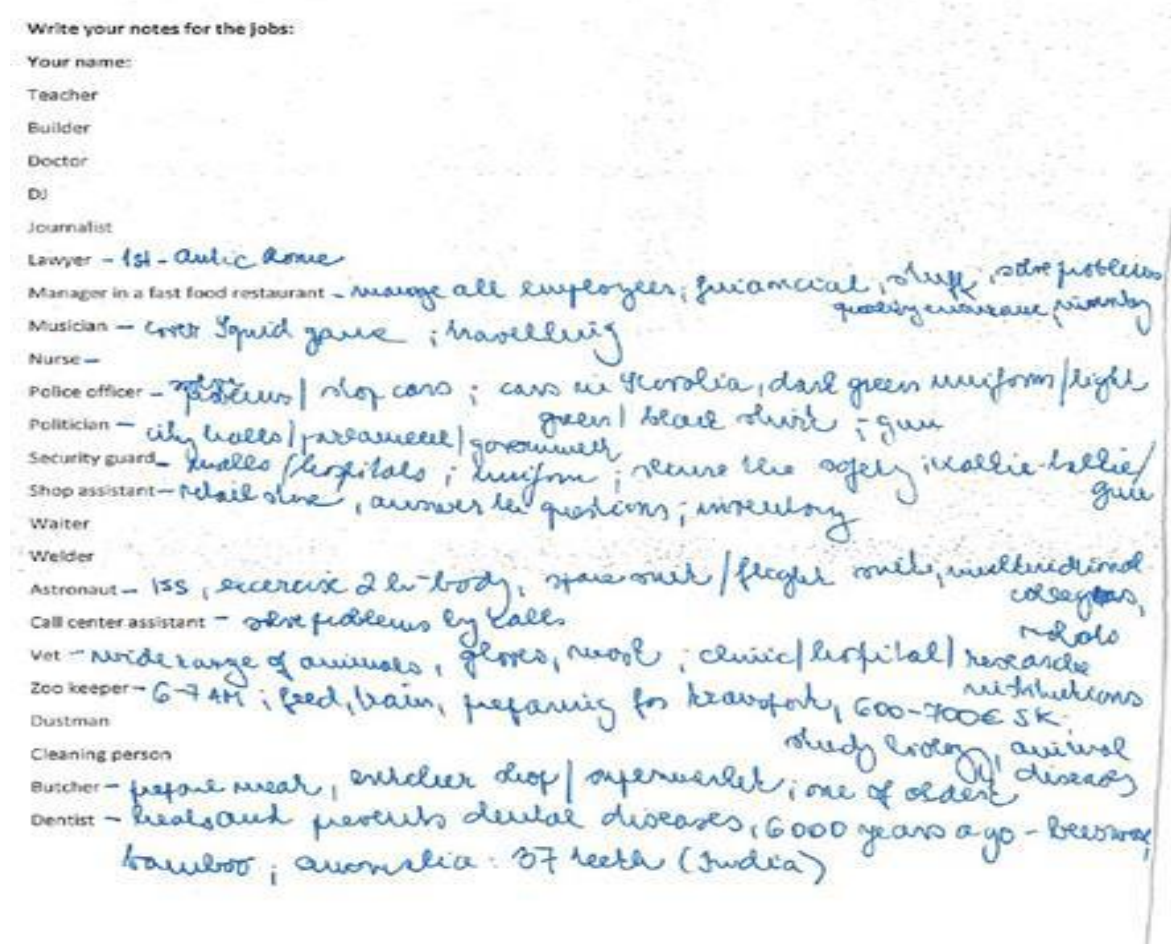 Write your notes for the jobs:
Your name:
Teacher
Builder
Doctor
DJ
Journalist
Lawyer - 1st - antic Rome
Manager in a fast food restaurant - manage all employees, financial, stuff, solve problems
quality ensurance, inventory
Musician - cover Squid game ; travelling
Nurse -
Police officer - solve problems / stop cars ; cars in , dark green uniform / light
green / black shirt ; gun
Politician - city halls / parlament / government
Security guard - malls / hospitals ; uniform ; secure the safety ; wallkie-talkie /
gun
Shop assistant - retail store , answer the questions ; inventory
Waiter
Welder
Astronaut - ISS , excercise 2 h - body, space suit / flight suit,
robots
Call center assistant - solve problems by calls
Vet - wide range of animals, gloves, mask ; clinic / hospital / research
institutions
Zoo keeper - 6-7 AM ; feed, train, preparing for transport, 600-700€ SK ;
study biology, animal
diseases
Dustman
Cleaning person
Butcher - prepare meat, butcher shop / supermarket ; one of oldest
Dentist - heals and prevents dental diseases, 6000 years ago - beeswax,
bamboo ; : 37 teeth (India)